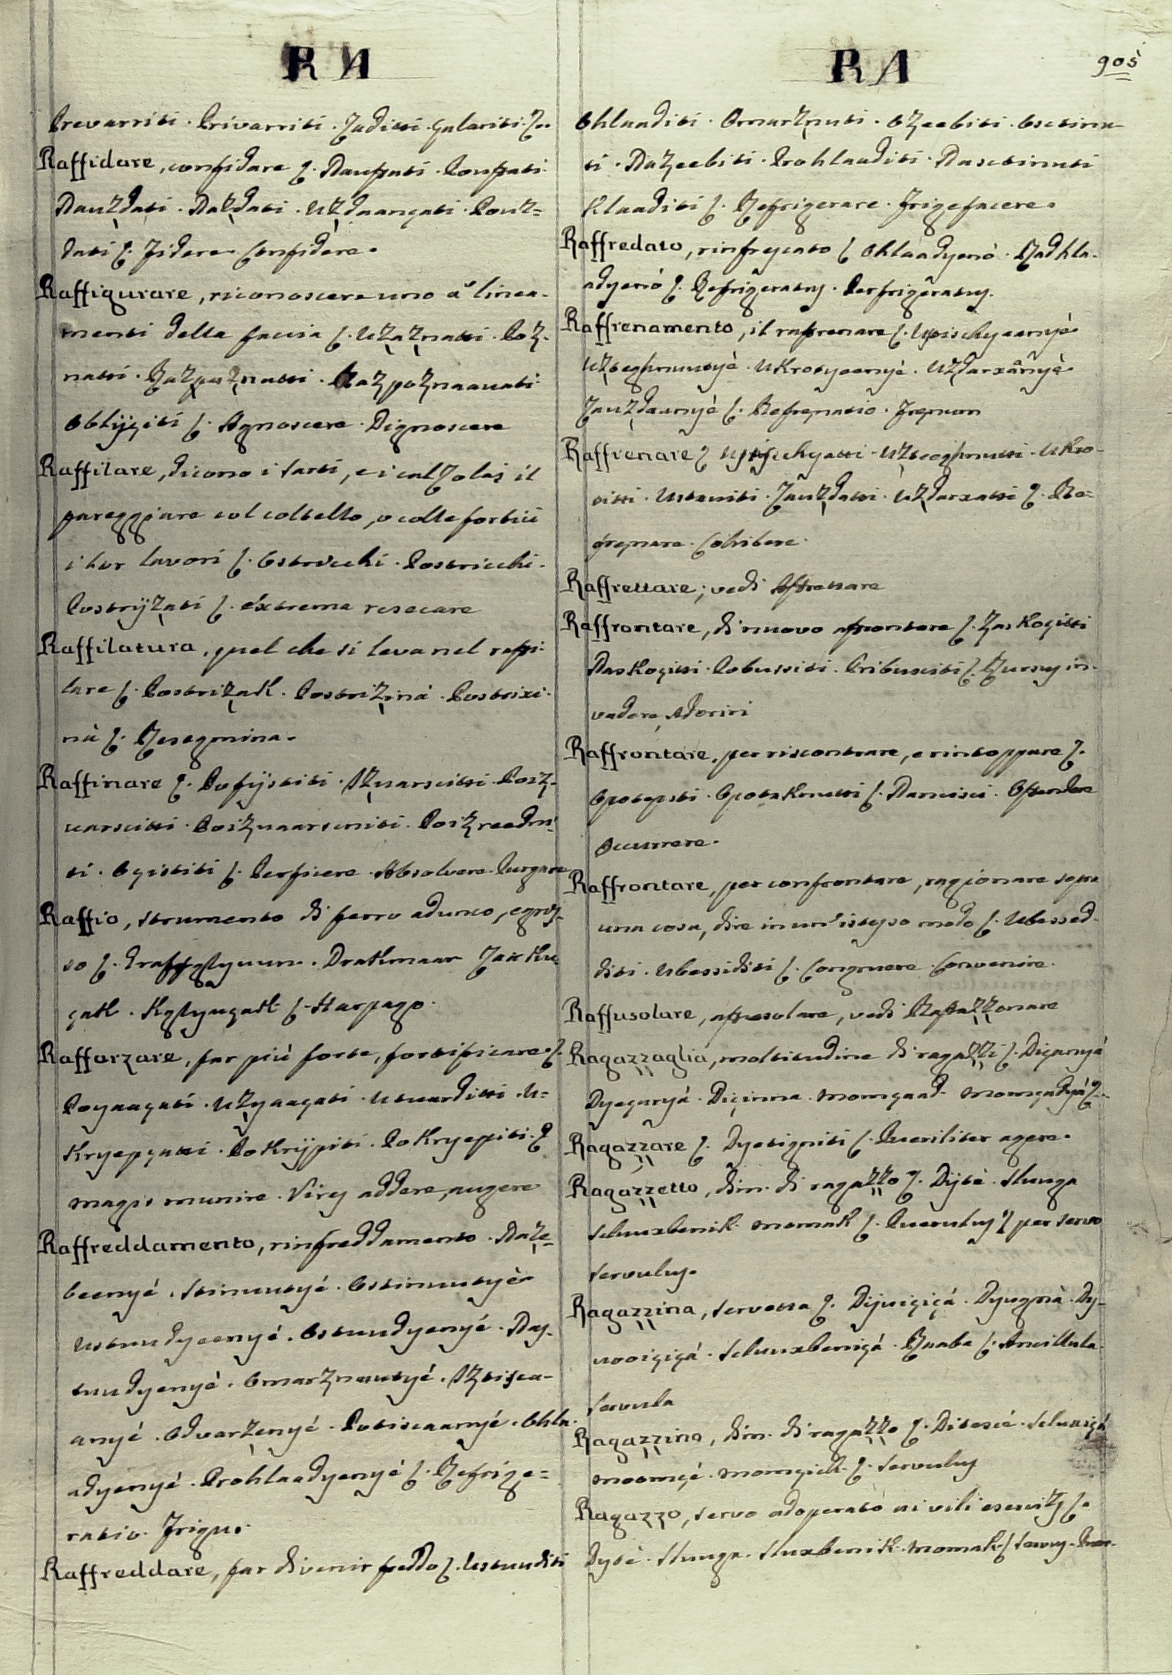 RA
Prevarriti. Privarriti. Jaditti. Galariti. &.
Raffidare, confidare ζ. Daufzati. Poufzati.
Dauzdati. Dazdati. Uzdaançati. Pouz=
dati ζ. Fidere. Confidere.
Raffigurare, riconoscere uno a' linea-
menti della faccia ζ. Uzaznatti. Poz-
natti. Razpoznatti. Razpoznaavati.
Obliÿçiti ζ. Agnoscere. Dignoscere
Raffilare, dicono i sarti, e i calzolaj il
pareggiare col coltello, o colle forbici
i lor lavori ζ. Ostricchi. Postricchi.
Postrÿzati ζ. extrema resecare
Raffilatura, quel che si leva nel raffi-
lare ζ. Postrizak. Postrizinà. Postrixi-
nà ζ. Resegmina.
Raffinare ζ. Pofÿstiti. Izuarscitti. Poiz-
uarscitti. Poizuaarsciuti. Poizreedni-
ti. Ogistiti ζ. Perficere. Absolvere. Purgare
Raffio, strumento di ferro adunco, e gros-
so ζ. Drakmaar
çatk. ζ. Harpago.
Rafforzare, far più forte, fortificare. ζ.
Poyaaçati. Uzyaaçati. Utuarditti. U-
kryepçatti. Pokrÿpiti. Pokryepiti. ζ
magis munire. Vires addere, augere
Raffreddamento, rinfreddamento. Naze-
beenyé. Stinuutyé. Ostinuutyè
Ustuudyeenyé. Ostuudyenyé. Nas-
tuudyenyé. Omarznuutyé. Iztisca-
anyé. Odvarzenyé. Potiscaanyé. Ohla-
adyenyé. Prohlaadyenyé ζ. Refrige=
ratio. Frigus.
Raffreddare, far divenir freddo ζ. Ustuuditi
RA 905
Ohlaaditi. Omarznuti. Ozeebiti. Osctinu-
ti. Nazeebiti. Prohlaaditi. Nasctinuti
Hlaaditi ζ. Refrigerare. Frigefacere.
Raffredato, rinfrescato ζ Ohlaadyenò. Razhla-
adyenò ζ. Refrigeratus. Perfrigeratus.
Raffrenamento, il raffrenare ζ.
Uztegfnuutyè. Ukrotyeenyé. Uzdarxaanyè
Zauzdaanyé ζ. Refrenatio. Frenum
Raffrenare ζ Uztegfnutti. Ukro-
titti. Ustaviti. Zauzdatti. Uzdarxatti ζ. Re-
frenare. Cohibere.
Raffrettare; vedi Affrettare
Raffrontare, di nuovo affrontare ζ. Zaskoçitti
Naskoçitti. Pobussiti. Pribusciti ζ. Rursus in-
vadere, Adoriri
Raffrontare, per riscontrare, e rintoppare ζ.
Opotepsti. Opotaknutti ζ. Namisci. Offendere
Occurrere.
Raffrontare, per confrontare, ragionare sopra
una cosa, dire in un' istesso modo ζ. Ubessed-
diti. Ubessiditi ζ. Congruere. Convenire.
Raffusolare, affusolare, vedi Raffazzonare
Ragazzaglia, moltitudine di ragazzi ζ. Diçanyá
Dyeçanyá. Diçinna. Momçaad. Momçadyá ζ.
Ragazzare ζ. Dyetigniti ζ. Pueriliter agere.
Ragazzetto, dim. di ragazzo ζ. Ditè. Sluuga
Sluuxbenik. momak ζ. Puerulus ζ per servo
servulus.
Ragazzina, servetta ζ. Dijviçiçá. Dyugnà. Dy-
vooiçiçá. Sluuxbeniçá. Raaba ζ. Ancillula.
Servula
Ragazzino, dim. di ragazzo ζ. Ditescié. Sluxiçá
moomçé. momçick. ζ. servulus
Ragazzo, servo adoperato ai vili esercitz ζ.
Dytè. Sluuga. Sluxbenik. momak ζ servus. Puer.